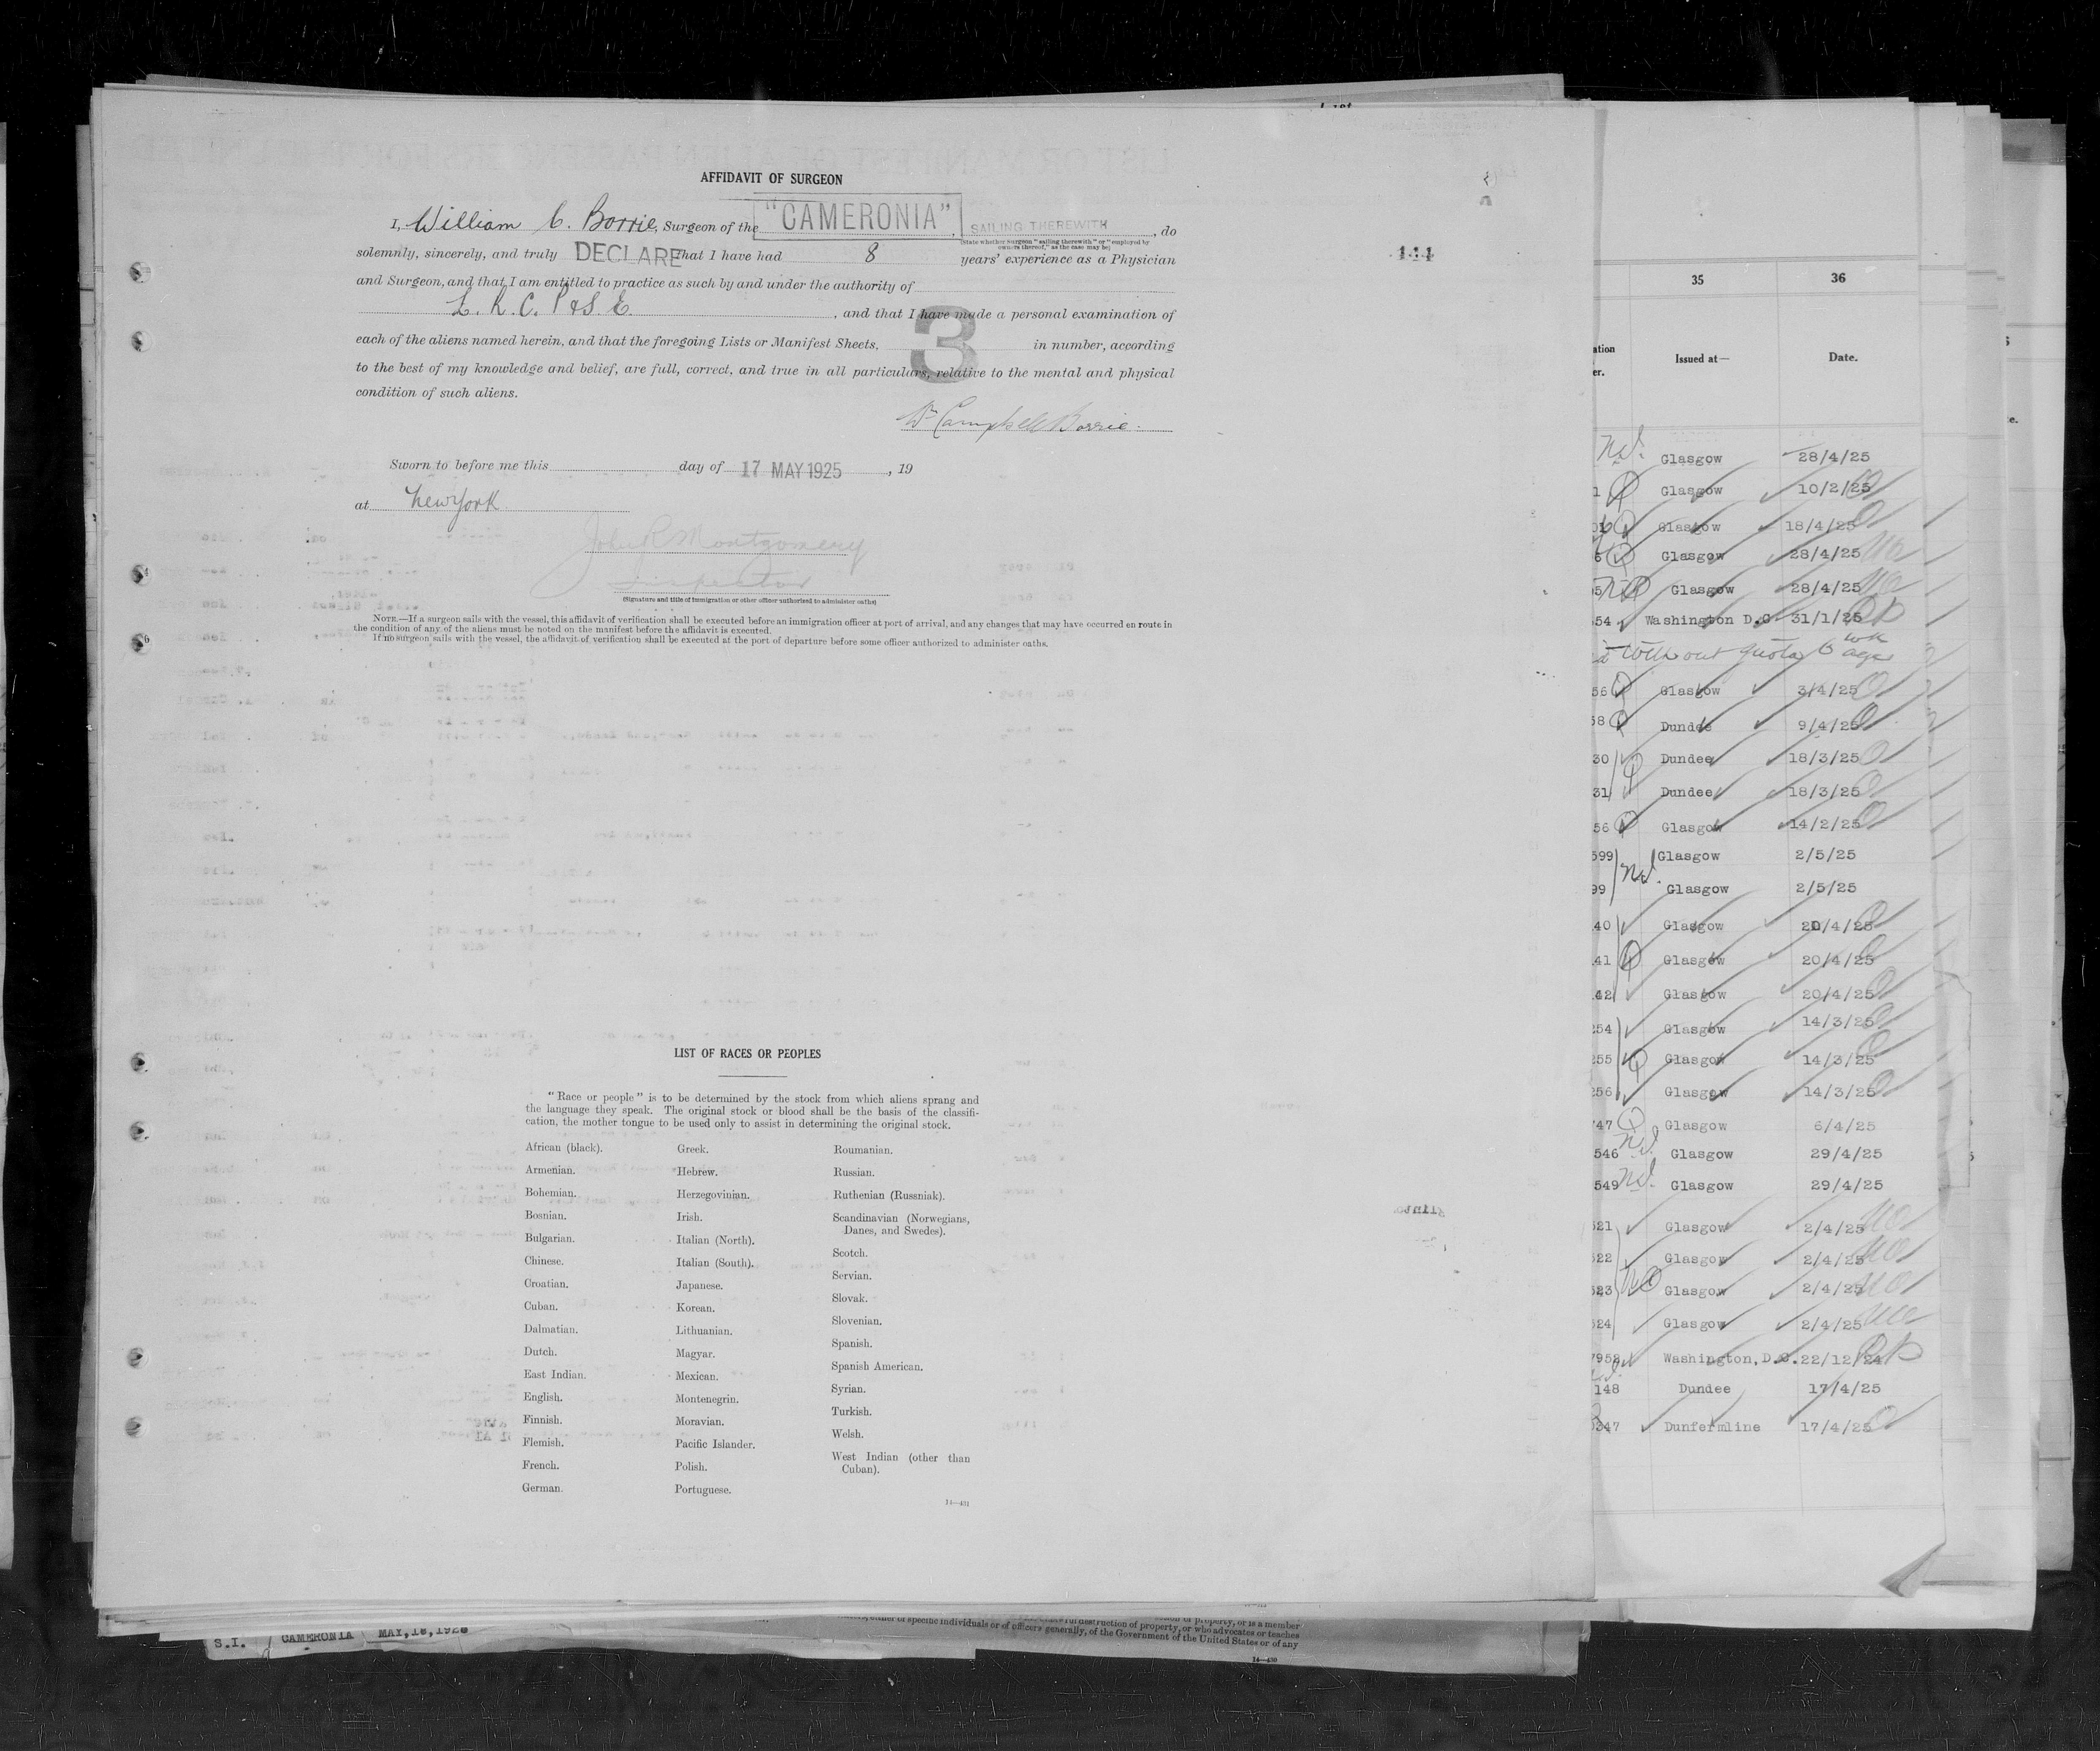 AFFIDAVIT OF SURGEON
I, William C. Borrie, Surgeon of the "CAMERONIA", SAILING THEREWITH, do
(State whether Surgeon "sailing therewith" or "employed by
owners thereof," as the case may be)
solemnly, sincerely, and truly DECLARE that I have had 8 years' experience as a Physician
and Surgeon, and that I am entitled to practice as such by and under the authority of
L. R. C. P & S. E. , and that I have made a personal examination of
each of the aliens named herein, and that the foregoing Lists or Manifest Sheets, 3 in number, according
to the best of my knowledge and belief, are full, correct, and true in all particulars, relative to the mental and physical
condition of such aliens.
Wm Campbell Borrie.
Sworn to before me this day of 17 MAY 1925, 19
at New York
John R Montgomery
Inspector
(Signature and title of immigration or other officer authorized to administer oaths)
NOTE.—If a surgeon sails with the vessel, this affidavit of verification shall be executed before an immigration officer at port of arrival, and any changes that may have occurred en route in
the condition of any of the aliens must be noted on the manifest before the affidavit is executed.
If no surgeon sails with the vessel, the affidavit of verification shall be executed at the port of departure before some officer authorized to administer oaths.
LIST OF RACES OR PEOPLES
"Race or people" is to be determined by the stock from which aliens sprang and
the language they speak. The original stock or blood shall be the basis of the classifi-
cation, the mother tongue to be used only to assist in determining the original stock.
African (black).
Armenian.
Bohemian.
Bosnian.
Bulgarian.
Chinese.
Croatian.
Cuban.
Dalmatian.
Dutch.
East Indian.
English.
Finnish.
Flemish.
French.
German.
Greek.
Hebrew.
Herzegovinian.
Irish.
Italian (North).
Italian (South).
Japanese.
Korean.
Lithuanian.
Magyar.
Mexican.
Montenegrin.
Moravian.
Pacific Islander.
Polish.
Portuguese.
Roumanian.
Russian.
Ruthenian (Russniak).
Scandinavian (Norwegians,
Danes, and Swedes).
Scotch.
Servian.
Slovak.
Slovenian.
Spanish.
Spanish American.
Syrian.
Turkish.
Welsh.
West Indian (other than
Cuban).
14—431
35 36
Issued at— Date.
Nd. Glasgow 28/4/25
1 Glasgow 10/2/25
Glasgow 18/4/25
6 Glasgow 28/4/25
5 Glasgow 28/4/25
54 Washington D.C 31/1/25
without quota 6 wk age
56 Glasgow 3/4/25
58 Dundee 9/4/25
30 Dundee 18/3/25
31 Dundee 18/3/25
56 Glasgow 14/2/25
599 Glasgow 2/5/25
99 Nd. Glasgow 2/5/25
40 Glasgow 20/4/25
41 Glasgow 20/4/25
42 Glasgow 20/4/25
254 Glasgow 14/3/25
255 Glasgow 14/3/25
256 Glasgow 14/3/25
747 Glasgow 6/4/25
546 Nd. Glasgow 29/4/25
549 Nd. Glasgow 29/4/25
521 Glasgow 2/4/25
522 Glasgow 2/4/25
523 Glasgow 2/4/25
524 Glasgow 2/4/25
7958 Washington, D.C. 22/12/24
148 Dundee 17/4/25
347 Dunfermline 17/4/25
S.I. CAMERONIA
either of specific individuals or of officers generally, of the Government of the United States or of any
destruction of property, or is a member
or who advocates or teaches
14—430